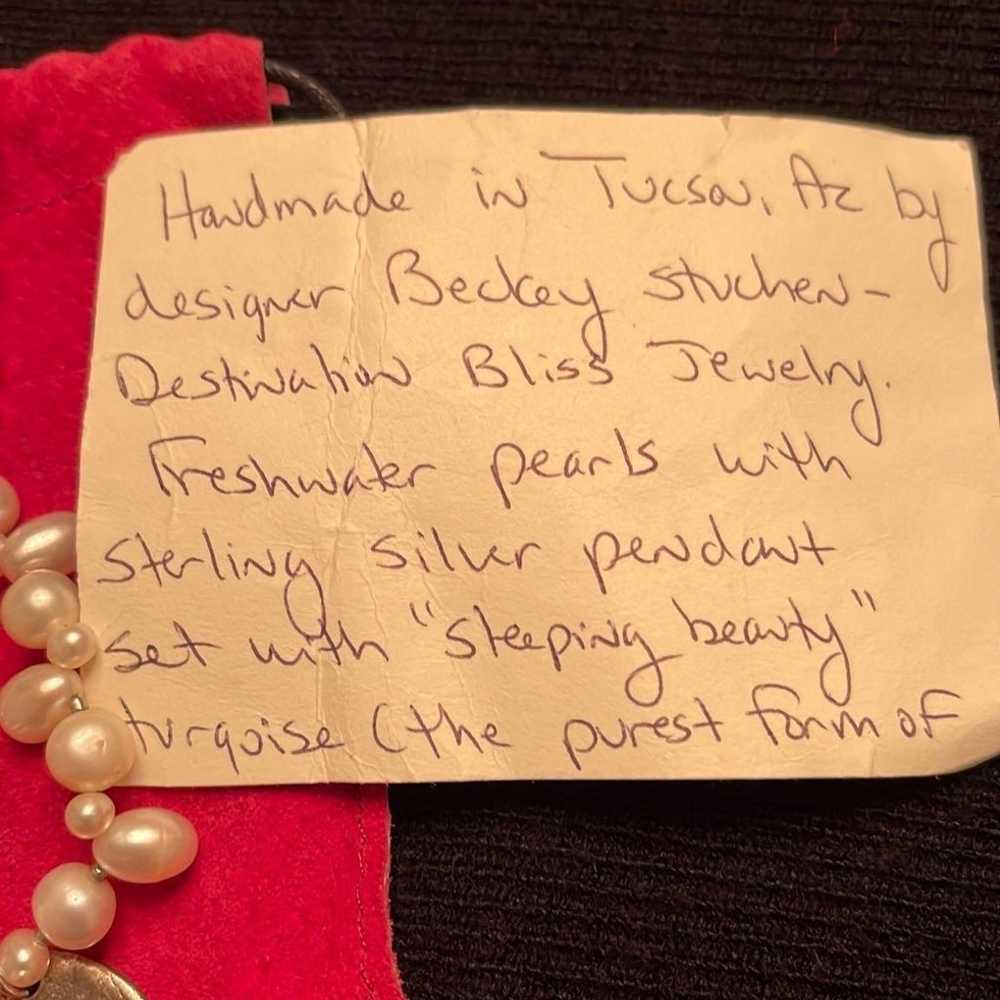 Handmade in Tucson, Az by
designer Beckey Stuchen-
Destination Bliss Jewelry.
Freshwater pearls with
sterling silver pendant
set with "sleeping beauty"
turquoise (the purest form of